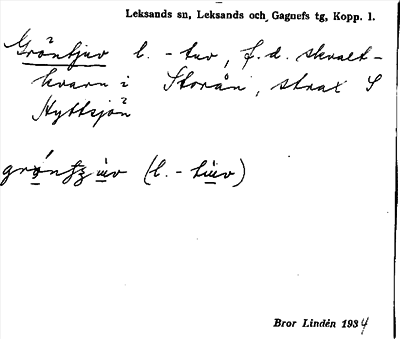 Leksands sn, Leksands och Gagnefs tg, Kopp. l.
Gröntjuv l. -tuv, f.d. skvalt-
kvarn i Storån, strax S
Hyttsjön
Bror Lindén 1934